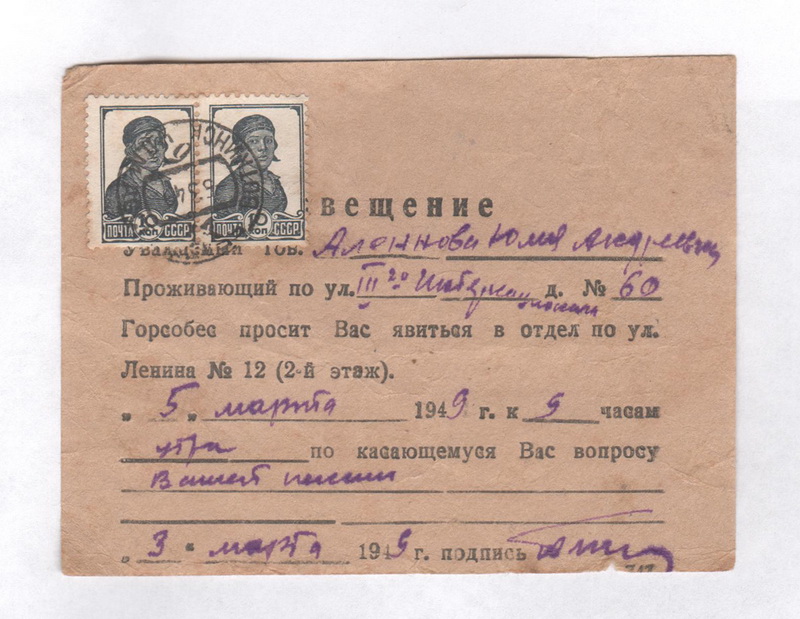 ПОЧТА СССР
10 КОП
ПОЧТА СССР
10 КОП
вещение
Уважаемый тов. Андреевна
Проживающий по ул. III го Интернационала д. № 60
Горсобес просит Вас явиться в отдел по ул.
Ленина № 12 (2-й этаж).
„ 5 „ марта 1949 г. к 9 часам
утра по касающемуся Вас вопросу
Вашей пенсии
„ 3 „ марта 1949 г. подпись